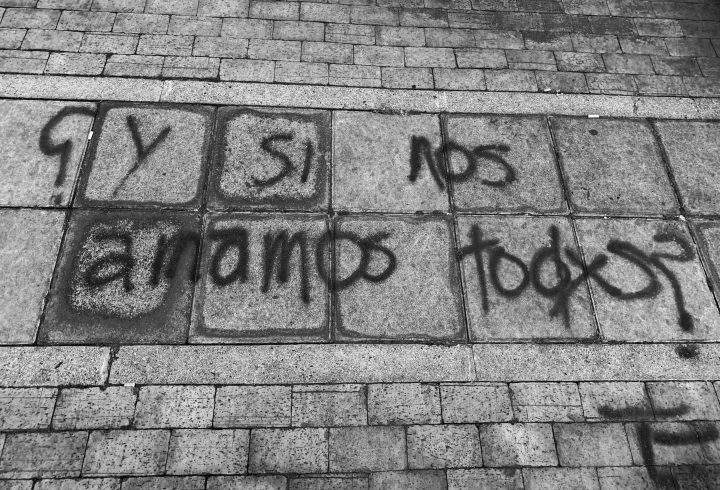 ¿Y SI NOS
amamos todxs?